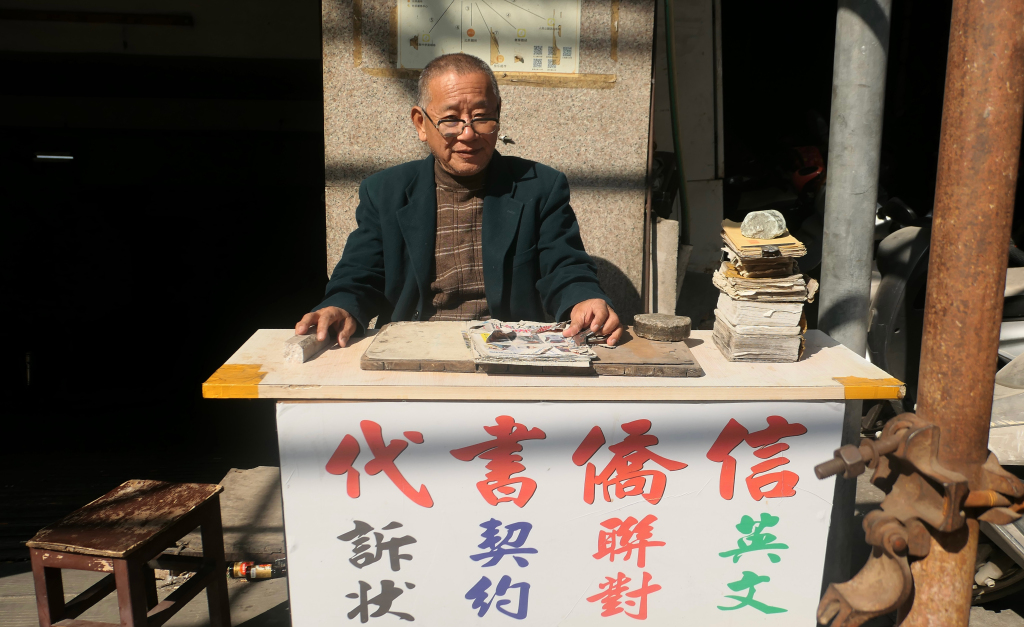 代書僑信
訴契聯英
状約對文